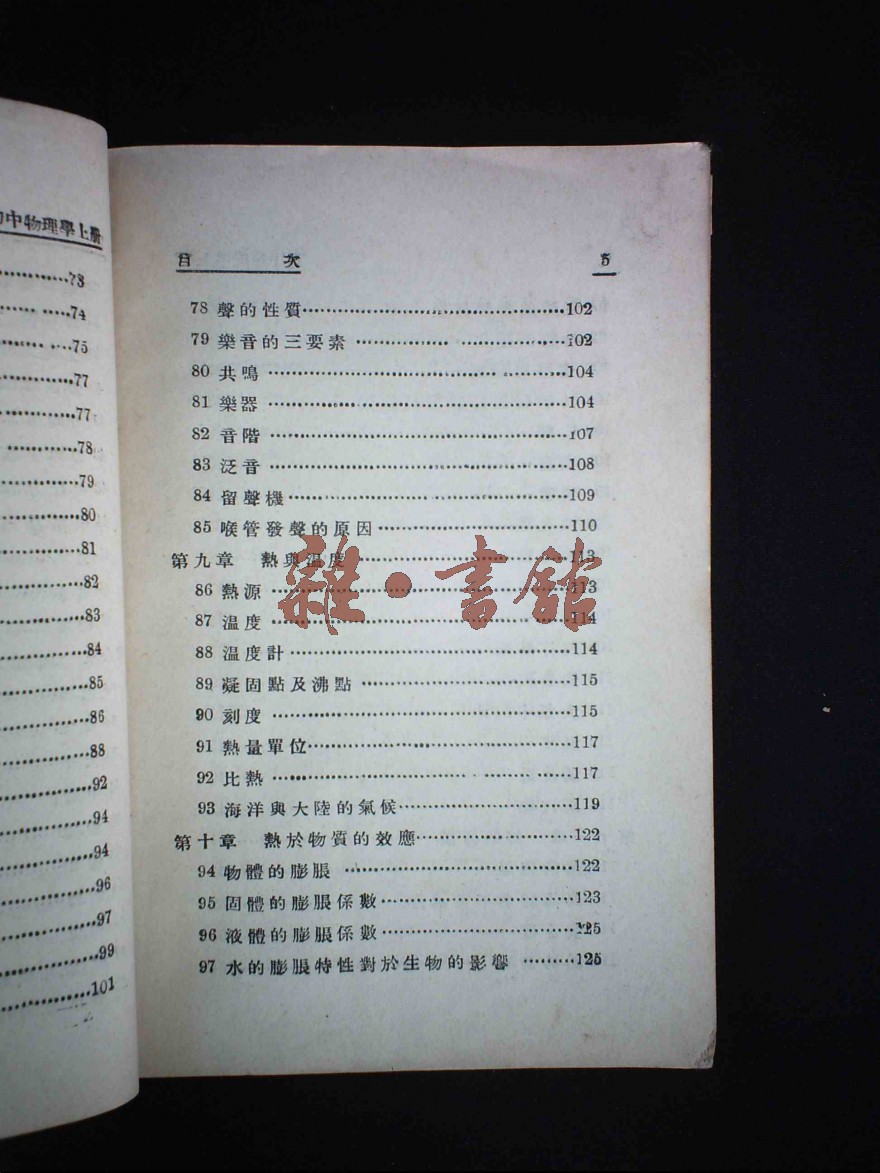 中物理學上册
73
74
75
77
77
78
79
80
81
82
83
84
85
86
88
92
94
94
96
97
99
101
目次 5
78 聲的性質……102
79 樂音的三要素……102
80 共鳴……104
81 樂器……104
82 音階……107
83 泛音……108
84 留聲機……109
85 喉管發聲的原因……110
第九章 熱與温度……113
86 熱源……113
87 温度……114
88 温度計……114
89 凝固點及沸點……115
90 刻度……115
91 熱量單位……117
92 比熱……117
93 海洋與大陸的氣候……119
第十章 熱於物質的效應……122
94 物體的膨脹……122
95 固體的膨脹係數……123
96 液體的膨脹係數……125
97 水的膨脹特性對於生物的影響……125
雜·書館